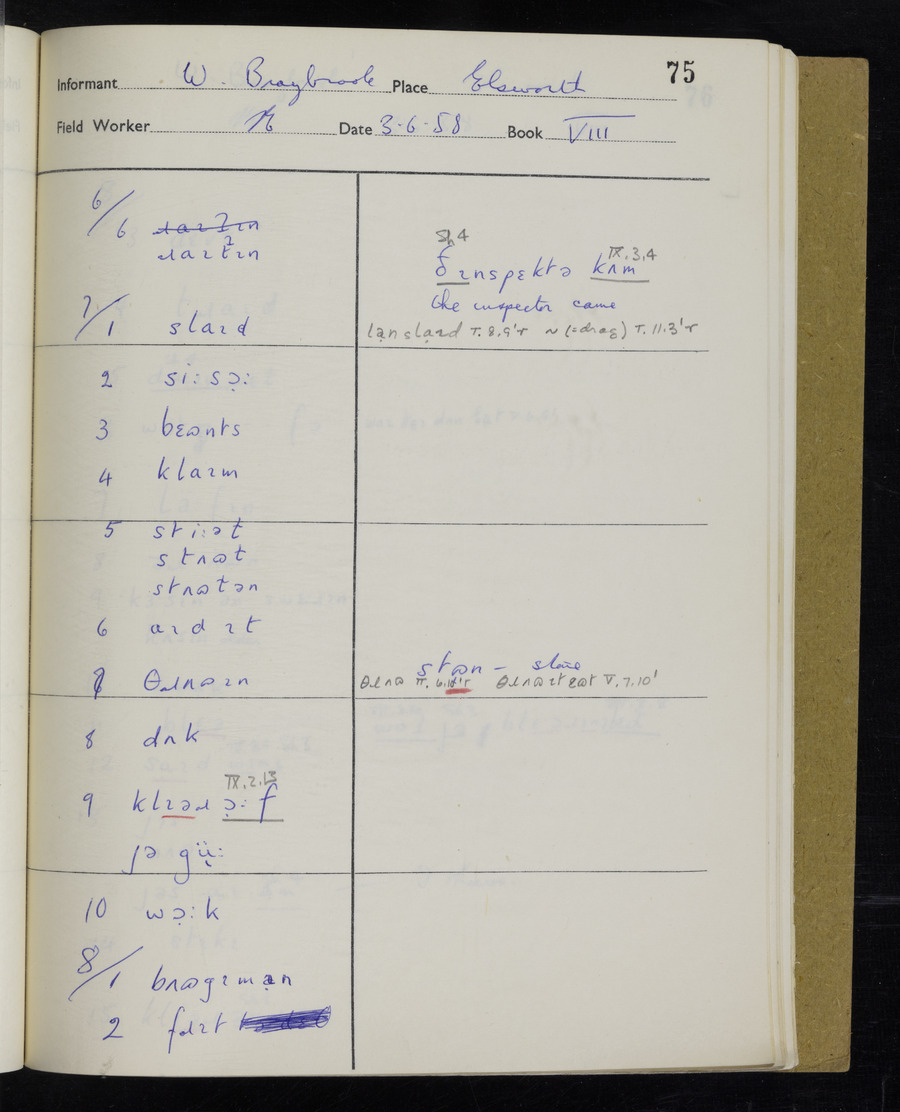 75
Informant W. Braybrook Place Elsworth
Field Worker Date 3-6-58 Book VIII
6/6 ɹaɪtʔɪn
ɹaɪtʔɪn
Sh 4
IX.3.4
ð ɪnspɛktə kʌm
the inspector came
7/1 slaɪd
laŋ slaɪd T. 8.9'r ~ (=drag) T. 11.3'r
2 si:sɔ̣:
3 bɛɷnts
4 klaɪm
5 sti:ət
stʌɷt
stʌɷtən
6 aɪd ɪt
7 θɹʌɷɪn
stɷn – stone
θɹʌɷ T. 6.10'r θɹʌɷ ɪt ɛɷt V.7.10'
8 dʌk
IX.2.13
9 klɪəɹ ɔ̣:f
jə gü:
10 wɔ̣:k
8/1 bɷgɪman
2 fɹɪt